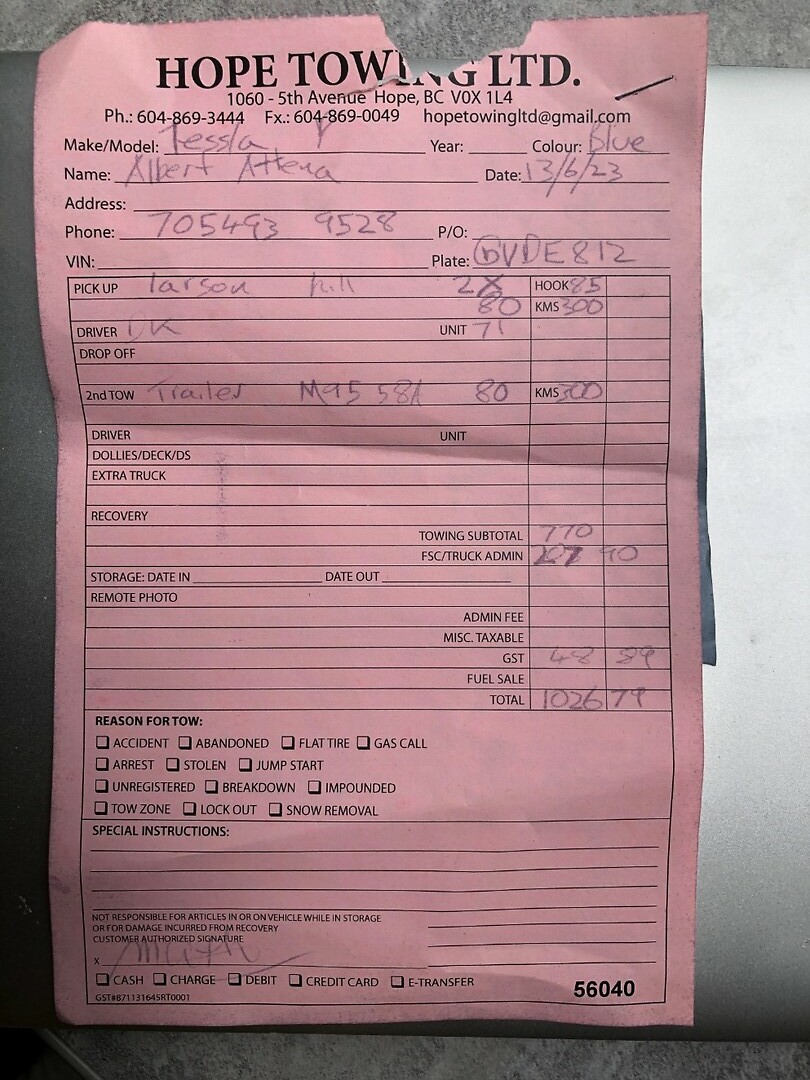 HOPE TOWING LTD.
1060 - 5th Avenue Hope, BC V0X 1L4
Ph.: 604-869-3444 Fx.: 604-869-0049 hopetowingltd@gmail.com
Make/Model: Tessla Y Year: Colour: Blue
Name: Albert Attena Date: 13/6/23
Address:
Phone: 705493 9528 P/O:
VIN: Plate: VDE812
PICK UP larson hill 2X HOOK 85
80 KMS 300
DRIVER DK UNIT 71
DROP OFF
2nd TOW Trailer M95 58A 80 KMS 300
DRIVER UNIT
DOLLIES/DECK/DS
EXTRA TRUCK
RECOVERY
TOWING SUBTOTAL 770
FSC/TRUCK ADMIN 207 90
STORAGE: DATE IN DATE OUT
REMOTE PHOTO
ADMIN FEE
MISC. TAXABLE
GST 48 89
FUEL SALE
TOTAL 1026 79
REASON FOR TOW:
ACCIDENT ABANDONED FLAT TIRE GAS CALL
ARREST STOLEN JUMP START
UNREGISTERED BREAKDOWN IMPOUNDED
TOW ZONE LOCK OUT SNOW REMOVAL
SPECIAL INSTRUCTIONS:
NOT RESPONSIBLE FOR ARTICLES IN OR ON VEHICLE WHILE IN STORAGE
OR FOR DAMAGE INCURRED FROM RECOVERY
CUSTOMER AUTHORIZED SIGNATURE
X
CASH CHARGE DEBIT CREDIT CARD E-TRANSFER
GST#871131645RT0001 56040